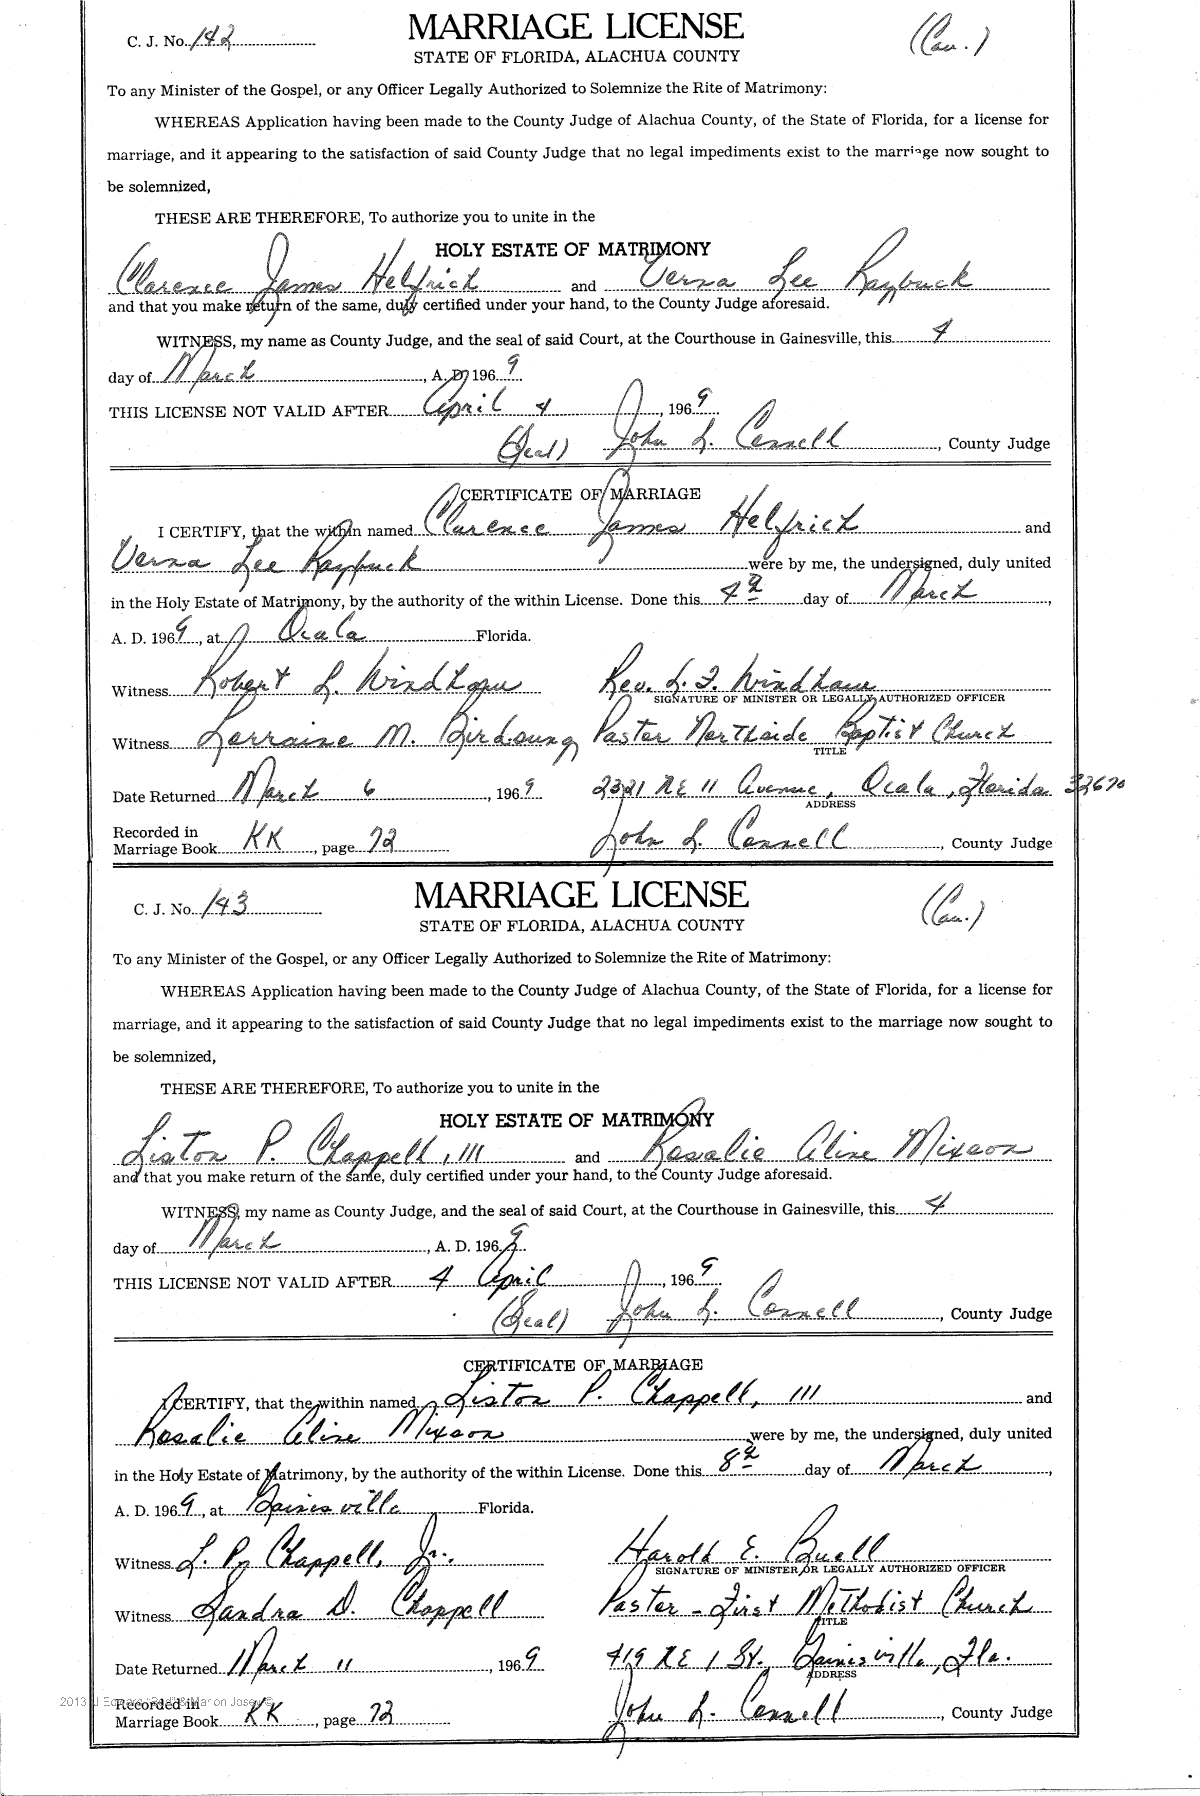 C. J. No. 142
MARRIAGE LICENSE
(Cau.)
STATE OF FLORIDA, ALACHUA COUNTY
To any Minister of the Gospel, or any Officer Legally Authorized to Solemnize the Rite of Matrimony:
WHEREAS Application having been made to the County Judge of Alachua County, of the State of Florida, for a license for
marriage, and it appearing to the satisfaction of said County Judge that no legal impediments exist to the marriage now sought to
be solemnized,
THESE ARE THEREFORE, To authorize you to unite in the
HOLY ESTATE OF MATRIMONY
Clarence James Helfrich and Verna Lee Raybuck
and that you make return of the same, duly certified under your hand, to the County Judge aforesaid.
WITNESS, my name as County Judge, and the seal of said Court, at the Courthouse in Gainesville, this 4
day of March, A. D. 1969
THIS LICENSE NOT VALID AFTER April 4, 1969
(Seal) John L. Connell, County Judge
CERTIFICATE OF MARRIAGE
I CERTIFY, that the within named Clarence James Helfrich and
Verna Lee Raybuck were by me, the undersigned, duly united
in the Holy Estate of Matrimony, by the authority of the within License. Done this 4th day of March,
A. D. 1969, at Ocala Florida.
Witness Robert L. Windham Rev. L. F. Windham
SIGNATURE OF MINISTER OR LEGALLY AUTHORIZED OFFICER
Witness Lorraine M. Birdsong Pastor Northside Baptist Church
TITLE
Date Returned March 6, 1969 2321 NE 11 Avenue, Ocala, Florida 32670
ADDRESS
Recorded in
Marriage Book KK, page 72 John L. Connell, County Judge
C. J. No. 143
MARRIAGE LICENSE
(Cau.)
STATE OF FLORIDA, ALACHUA COUNTY
To any Minister of the Gospel, or any Officer Legally Authorized to Solemnize the Rite of Matrimony:
WHEREAS Application having been made to the County Judge of Alachua County, of the State of Florida, for a license for
marriage, and it appearing to the satisfaction of said County Judge that no legal impediments exist to the marriage now sought to
be solemnized,
THESE ARE THEREFORE, To authorize you to unite in the
HOLY ESTATE OF MATRIMONY
Liston P. Chappell, III and Rosalie Aline Mixson
and that you make return of the same, duly certified under your hand, to the County Judge aforesaid.
WITNESS, my name as County Judge, and the seal of said Court, at the Courthouse in Gainesville, this 4
day of March, A. D. 1969
THIS LICENSE NOT VALID AFTER 4 April, 1969
(Seal) John L. Connell, County Judge
CERTIFICATE OF MARRIAGE
I CERTIFY, that the within named Liston P. Chappell, III and
Rosalie Aline Mixson were by me, the undersigned, duly united
in the Holy Estate of Matrimony, by the authority of the within License. Done this 8th day of March,
A. D. 1969, at Gainesville Florida.
Witness L. P. Chappell, Jr. Harold E. Buell
SIGNATURE OF MINISTER OR LEGALLY AUTHORIZED OFFICER
Witness Sandra D. Chappell Pastor - First Methodist Church
TITLE
Date Returned March 11, 1969 419 NE 1 St. Gainesville, Fla.
ADDRESS
2013 J
Recorded in
Marriage Book KK, page 72 John L. Connell, County Judge